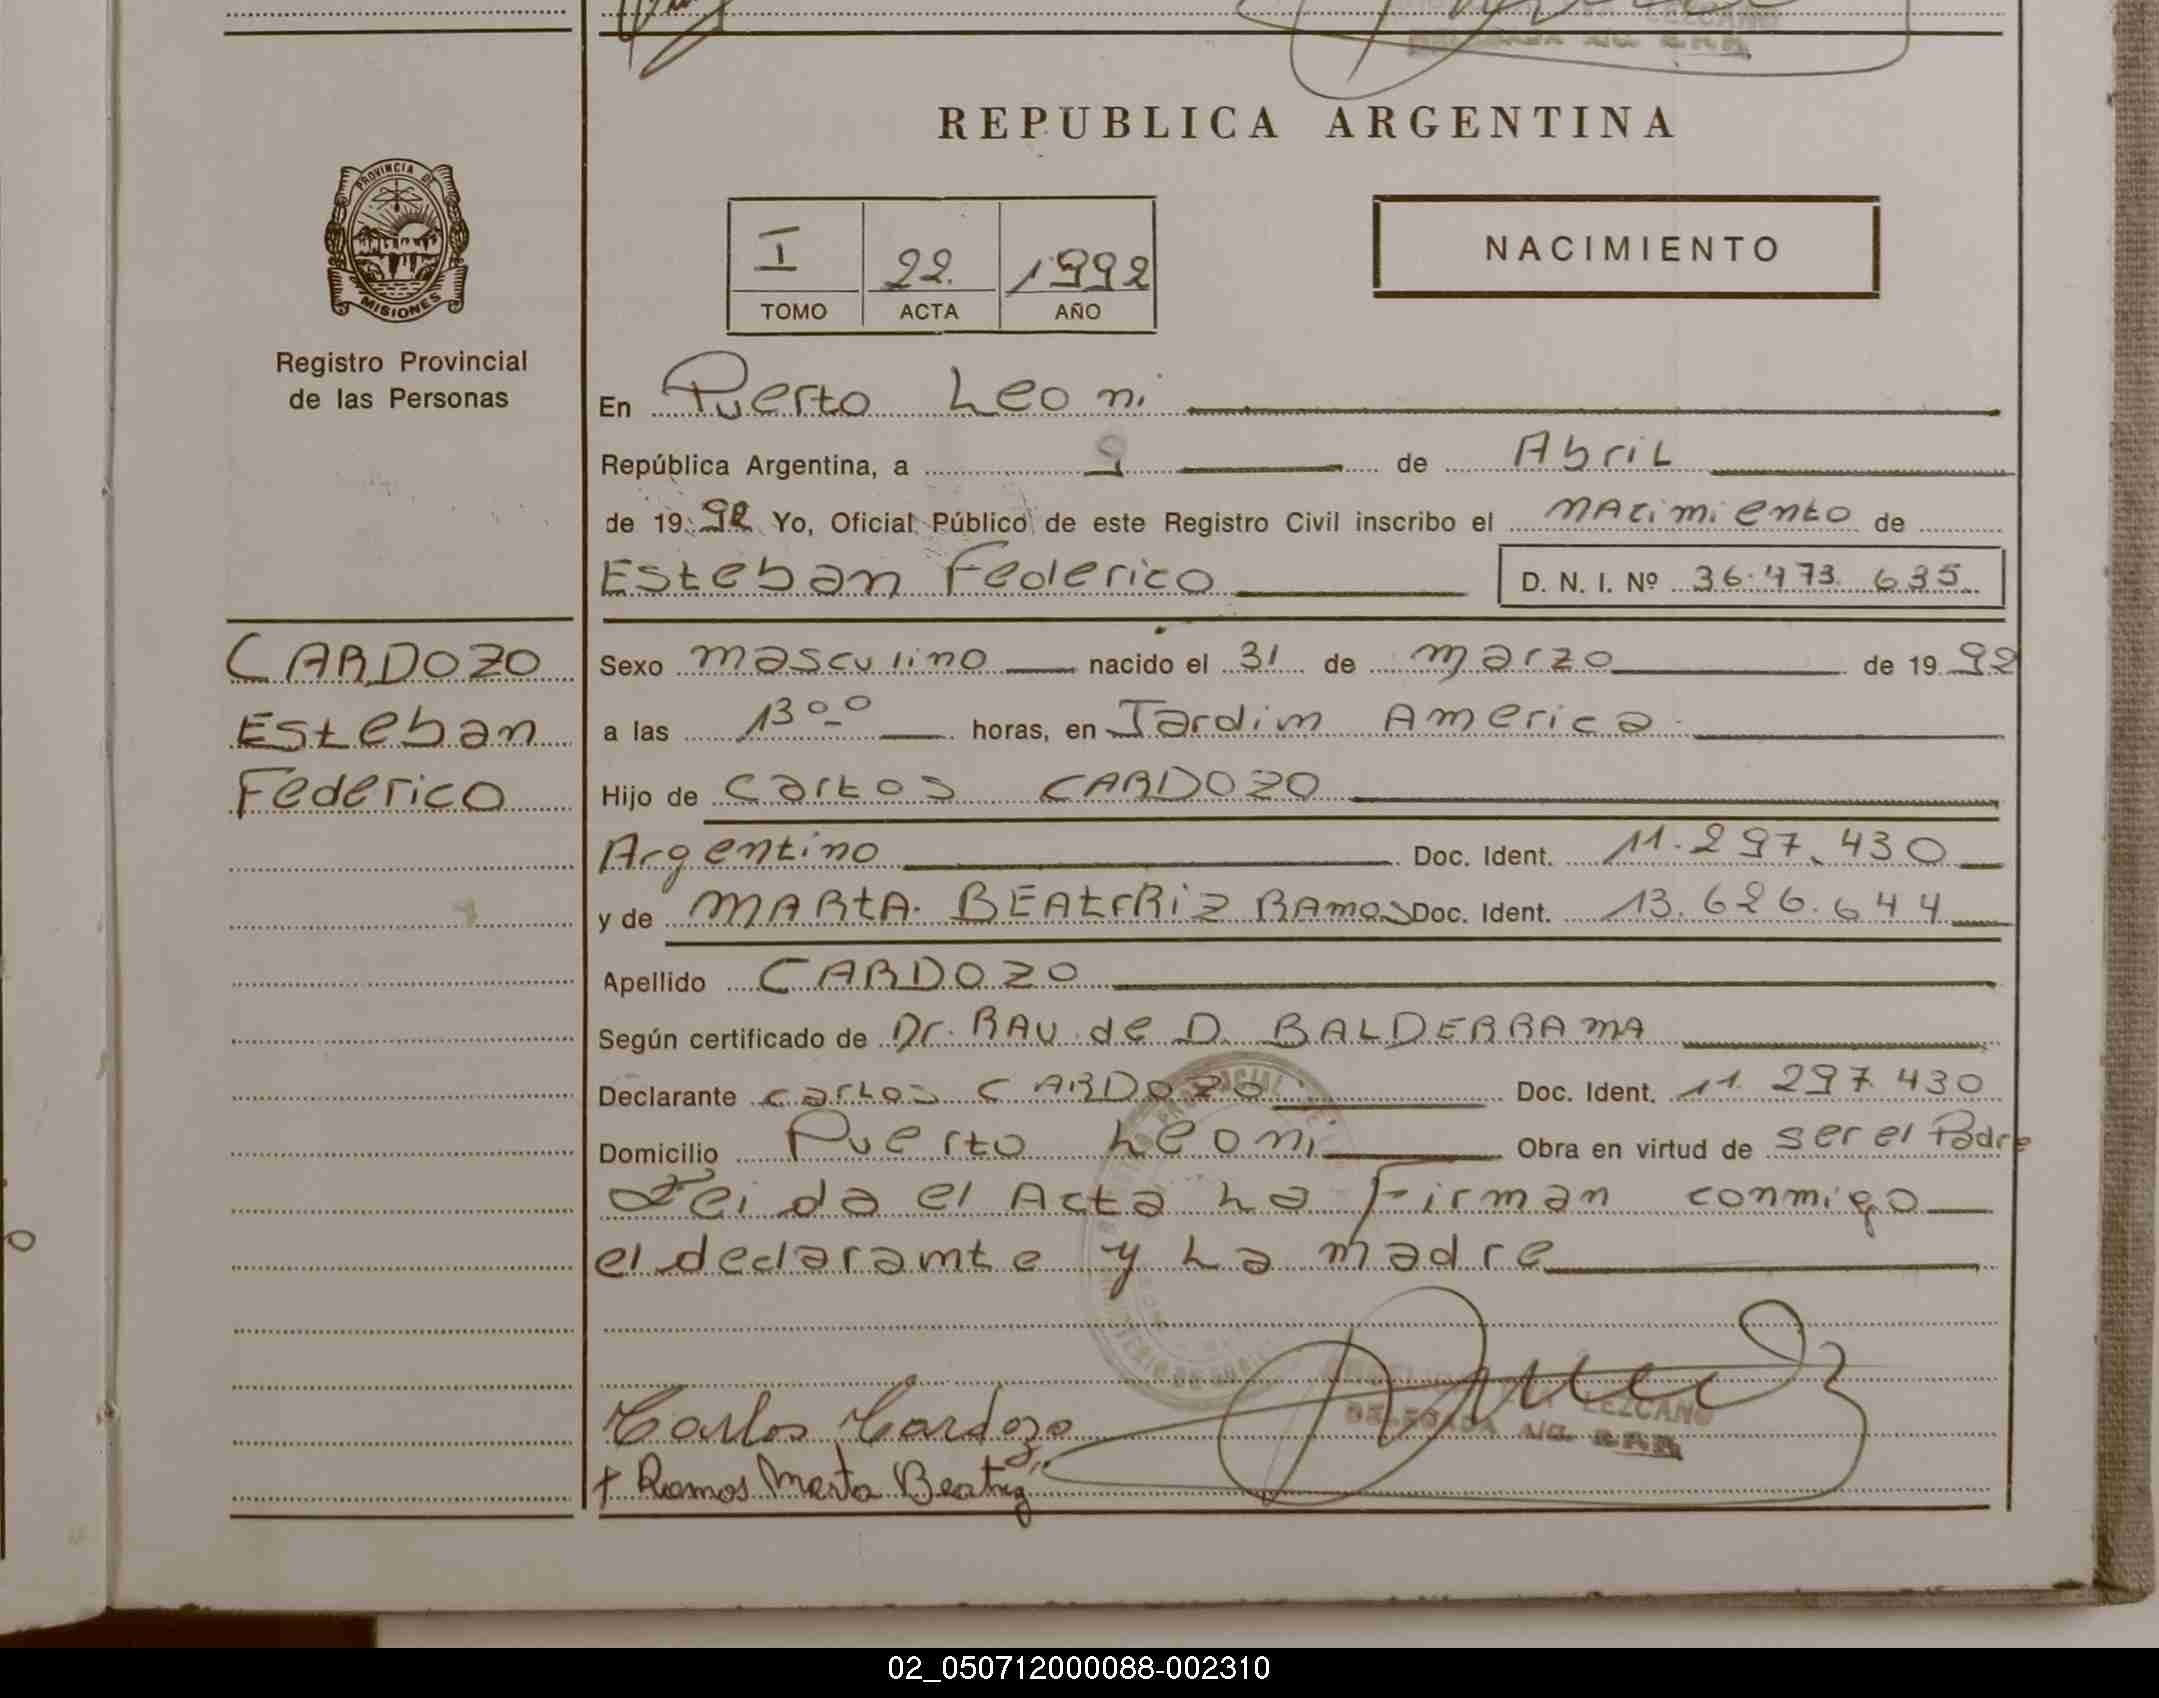 REPUBLICA ARGENTINA
PROVINCIA DE
MISIONES
Registro Provincial
de las Personas
I 22. 1992
TOMO ACTA AÑO
NACIMIENTO
En Puerto Leoni
República Argentina, a 9 de Abril
de 1992 Yo, Oficial Público de este Registro Civil inscribo el nacimiento de
Esteban Federico D. N. I. Nº 36.473.635
CARDOZO
Esteban
Federico
Sexo masculino nacido el 31 de marzo de 1992
a las 13 00 horas, en Jardim America
Hijo de Carlos CARDOZO
Argentino Doc. Ident. 11.297.430
y de MARTA. BEAtrRiz RAmos Doc. Ident. 13.626.644
Apellido CARDOZO
Según certificado de Dr. RAU de D. BALDERRAMA
Declarante Carlos CARDOZO Doc. Ident. 11.297.430
Domicilio Puerto Leoni Obra en virtud de ser el Padre
Leida el Acta La Firman conmigo
el declaramte y La madre
Carlos Cardozo
LEZCANO
DELEGADA
+ Ramos Marta Beatriz
02_050712000088-002310